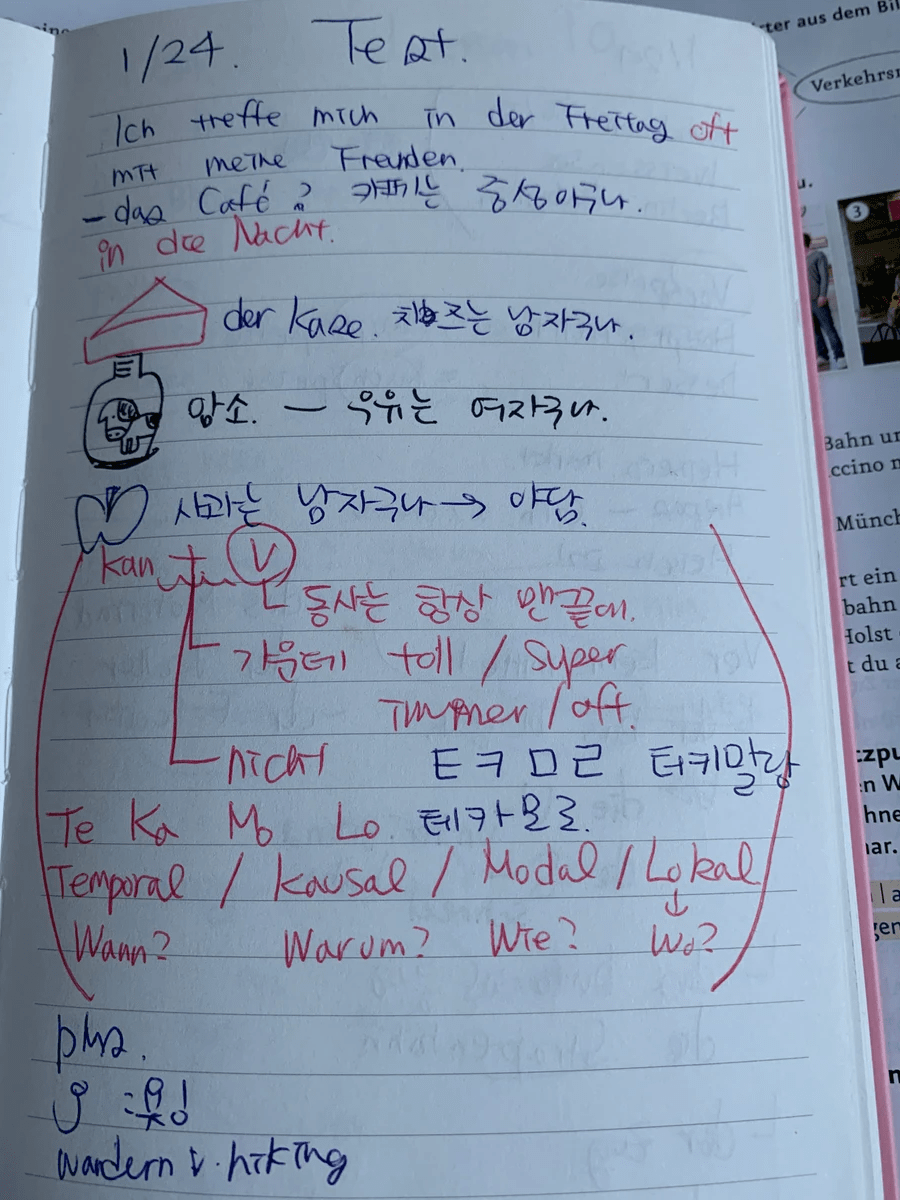 1/24. Test.
Ich treffe mich in der Freitag oft
mit meine Freunden.
– das Café? 카페는 중성이구나.
in die Nacht.
der Kase. 치즈는 남자구나.
암소. — 우유는 여자구나.
사과는 남자구나 → 아담.
kan V
동사는 항상 맨끝에.
가운데 toll / super
immer / oft.
nicht ㅌㅋㅁㄹ 터키말랑
Te Ka Mo Lo. 테카모로.
Temporal / Kausal / Modal / Lokal
Wann? Warum? Wie? Wo?
wandern v. hiking
rter aus dem Bil
Verkehrsr
u.
3
Bahn un
ccino m
Münch
rt ein
bahn
Holst
t du a
tzpu
n W
hne
nar.
l a
gen